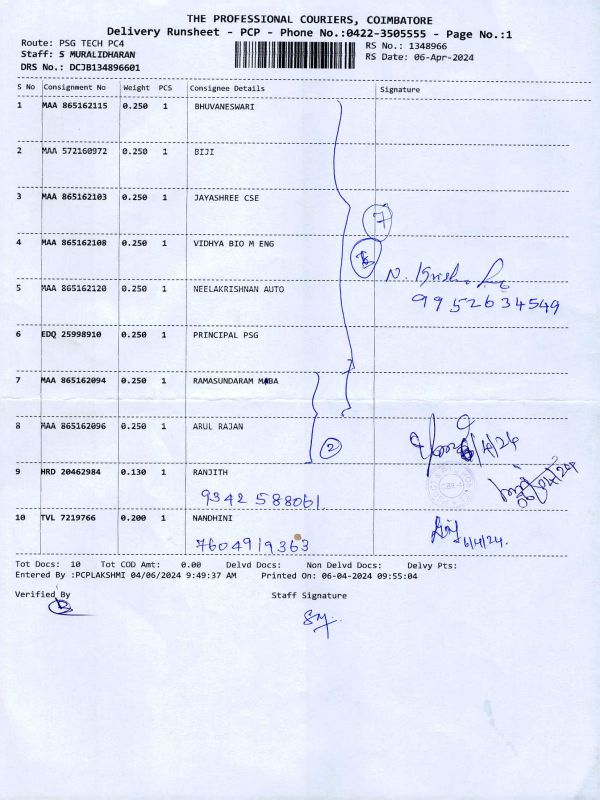 THE PROFESSIONAL COURIERS, COIMBATORE
Delivery Runsheet - PCP - Phone No.:0422-3505555 - Page No.:1
Route: PSG TECH PC4
RS No.: 1348966
Staff: S MURALIDHARAN
RS Date: 06-Apr-2024
DRS No.: DCJB134896601
S No Consignment No Weight PCS Consignee Details Signature
1 MAA 865162115 0.250 1 BHUVANESWARI
2 MAA 572160972 0.250 1 BIJI
3 MAA 865162103 0.250 1 JAYASHREE CSE
7
4 MAA 865162108 0.250 1 VIDHYA BIO M ENG
5 MAA 865162120 0.250 1 NEELAKRISHNAN AUTO
9952634549
6 EDQ 25998910 0.250 1 PRINCIPAL PSG
7 MAA 865162094 0.250 1 RAMASUNDARAM MABA
8 MAA 865162096 0.250 1 ARUL RAJAN
2
6/4/24
9 HRD 20462984 0.130 1 RANJITH
9342 588061
06/04/24
10 TVL 7219766 0.200 1 NANDHINI
7604919363
6/4/24.
Tot Docs: 10 Tot COD Amt: 0.00 Delvd Docs: Non Delvd Docs: Delvy Pts:
Entered By :PCPLAKSHMI 04/06/2024 9:49:37 AM Printed On: 06-04-2024 09:55:04
Verified By Staff Signature